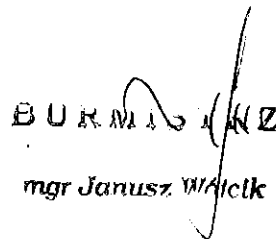 BURMISTRZ
mgr Janusz Wójcik